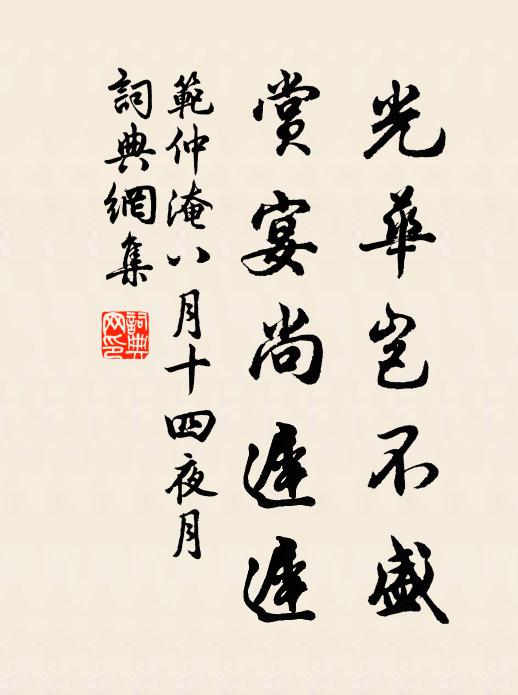 光華豈不盛
賞宴尚遲遲
範仲淹八月十四夜月
詞典網集
詞典網印